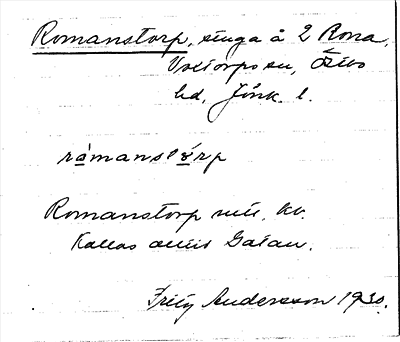 Romanstorp, stuga å 2 Rona,
Voxtorps sn, Östbo
hd, Jönk. l.
romanstårp
Romanstorp nu. kv.
Kallas även Gatan.
Fritz Andersson 1930.